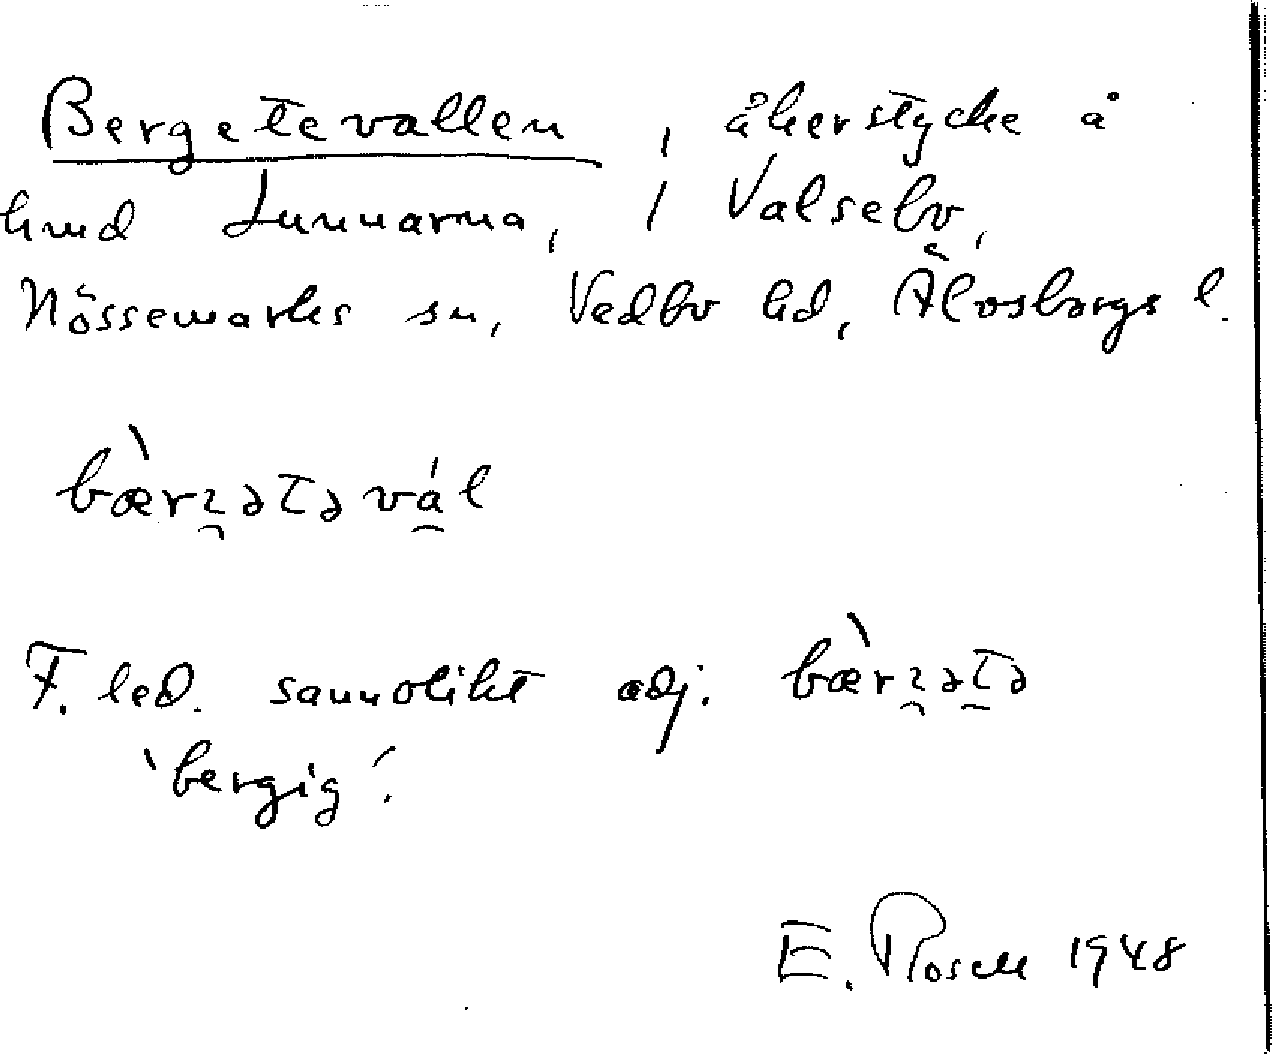 Bergetevallen, åkerstycke å
hmd Lunnarna, i Valsebo,
Nössemarks sn, Vedbo hd, Älvsborgs l.
bærɀətəvál
F. led. sannolikt adj. bærɀətə
'bergig'.
E. Rosell 1948